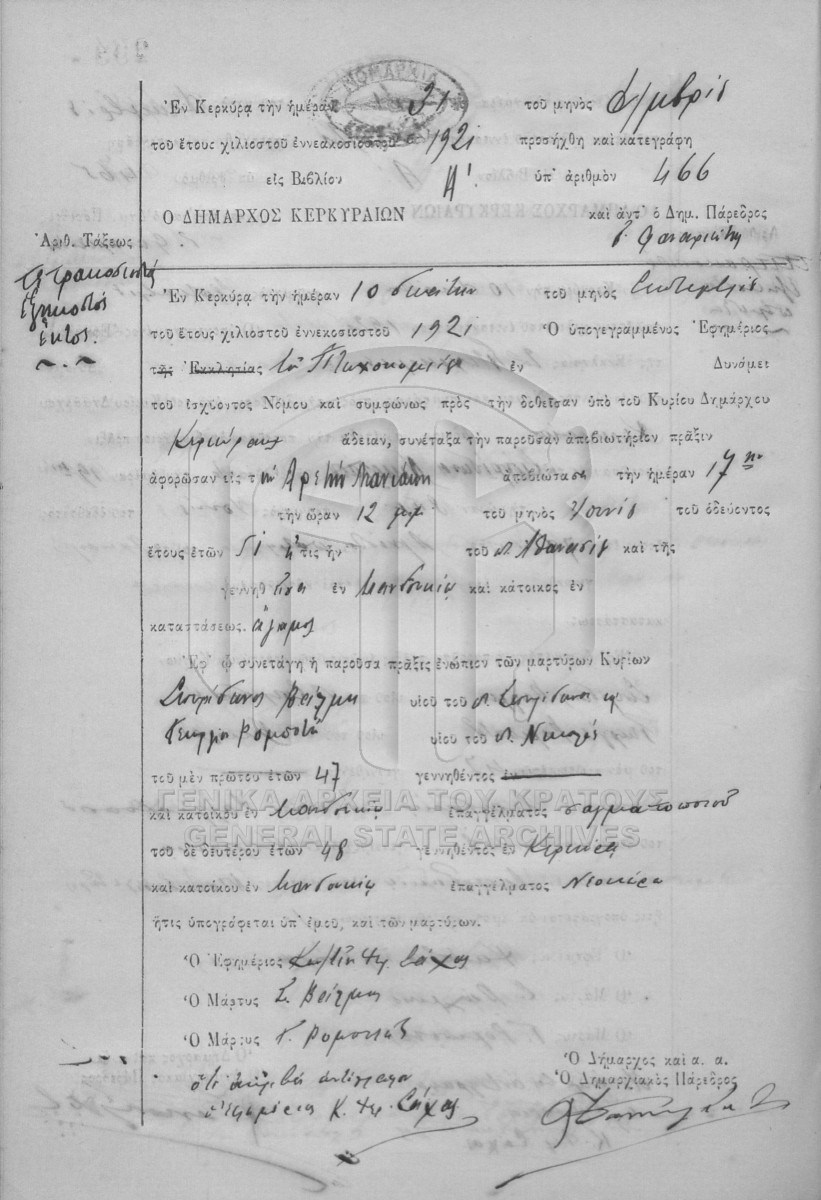 ΝΟΜΑΡΧΙΑ
Ἐν Κερκύρᾳ τὴν ἡμέραν 21 τοῦ μηνὸς
τοῦ ἔτους χιλιοστοῦ ἐννεακοσιοστοῦ 1921 προσήχθη καὶ κατεγράφη
εἰς Βιβλίον Α' ὑπ' ἀριθμὸν 466
Ὁ ΔΗΜΑΡΧΟΣ ΚΕΡΚΥΡΑΙΩΝ καὶ ἀντ' ὁ Δημ. Πάρεδρος
Ἀριθ. Τάξεως
τετρακοσιοστὸς
ἑξηκοστὸς
ἕκτος.
Ἐν Κερκύρᾳ τὴν ἡμέραν 10 δεκάτην τοῦ μηνὸς Σεπτεμβρίου
τοῦ ἔτους χιλιοστοῦ ἐννεκοσιοστοῦ 1921 Ὁ ὑπογεγραμμένος Ἐφημέριος
τῆς Ἐκκλησίας τοῦ Πτωχοκομείου ἐν Δυνάμει
τοῦ ἰσχύοντος Νόμου καὶ συμφώνως πρὸς τὴν δοθεῖσαν ὑπὸ τοῦ Κυρίου Δημάρχου
Κερκύρας ἄδειαν, συνέταξα τὴν παροῦσαν ἀποβιωτήριον πρᾶξιν
ἀφορῶσαν εἰς τὴν Ἀρετὴν ἀποβιώσασα τὴν ἡμέραν 17ην
τὴν ὥραν 12 μμ τοῦ μηνὸς τοῦ ὁδεύοντος
ἔτους ἐτῶν ἥτις ἦν τοῦ Ἀθανασίου καὶ τῆς
γεννηθεῖσα ἐν Μανδουκίῳ καὶ κάτοικος ἐν
καταστάσεως. ἄγαμος
Ἐφ' ᾧ συνετάγη ἡ παροῦσα πρᾶξις ἐνώπιον τῶν μαρτύρων Κυρίων
Σπυρίδωνος υἱοῦ τοῦ Σπυρίδωνος
Γεωργίου υἱοῦ τοῦ Νικολάου
τοῦ μὲν πρώτου ἐτῶν 47 γεννηθέντος ἐν
ΓΕΝΙΚΑ ΑΡΧΕΙΑ ΤΟΥ ΚΡΑΤΟΥΣ
καὶ κατοίκου ἐν Μανδουκίῳ ἐπαγγέλματος σαγματοποιοῦ
GENERAL STATE ARCHIVES
τοῦ δὲ δευτέρου ἐτῶν 48 γεννηθέντος ἐν Κερκύρᾳ
καὶ κατοίκου ἐν Μανδουκίῳ ἐπαγγέλματος
ἥτις ὑπογράφεται ὑπ' ἐμοῦ, καὶ τῶν μαρτύρων.
Ὁ Ἐφημέριος
Ὁ Μάρτυς Σ.
Ὁ Μάρτυς Γ.
Ὁ Δήμαρχος καὶ α. α.
ὅτι ἀκριβὲς ἀντίγραφον Ὁ Δημαρχιακὸς Πάρεδρος
ὁ ἐφημέριος Κ.